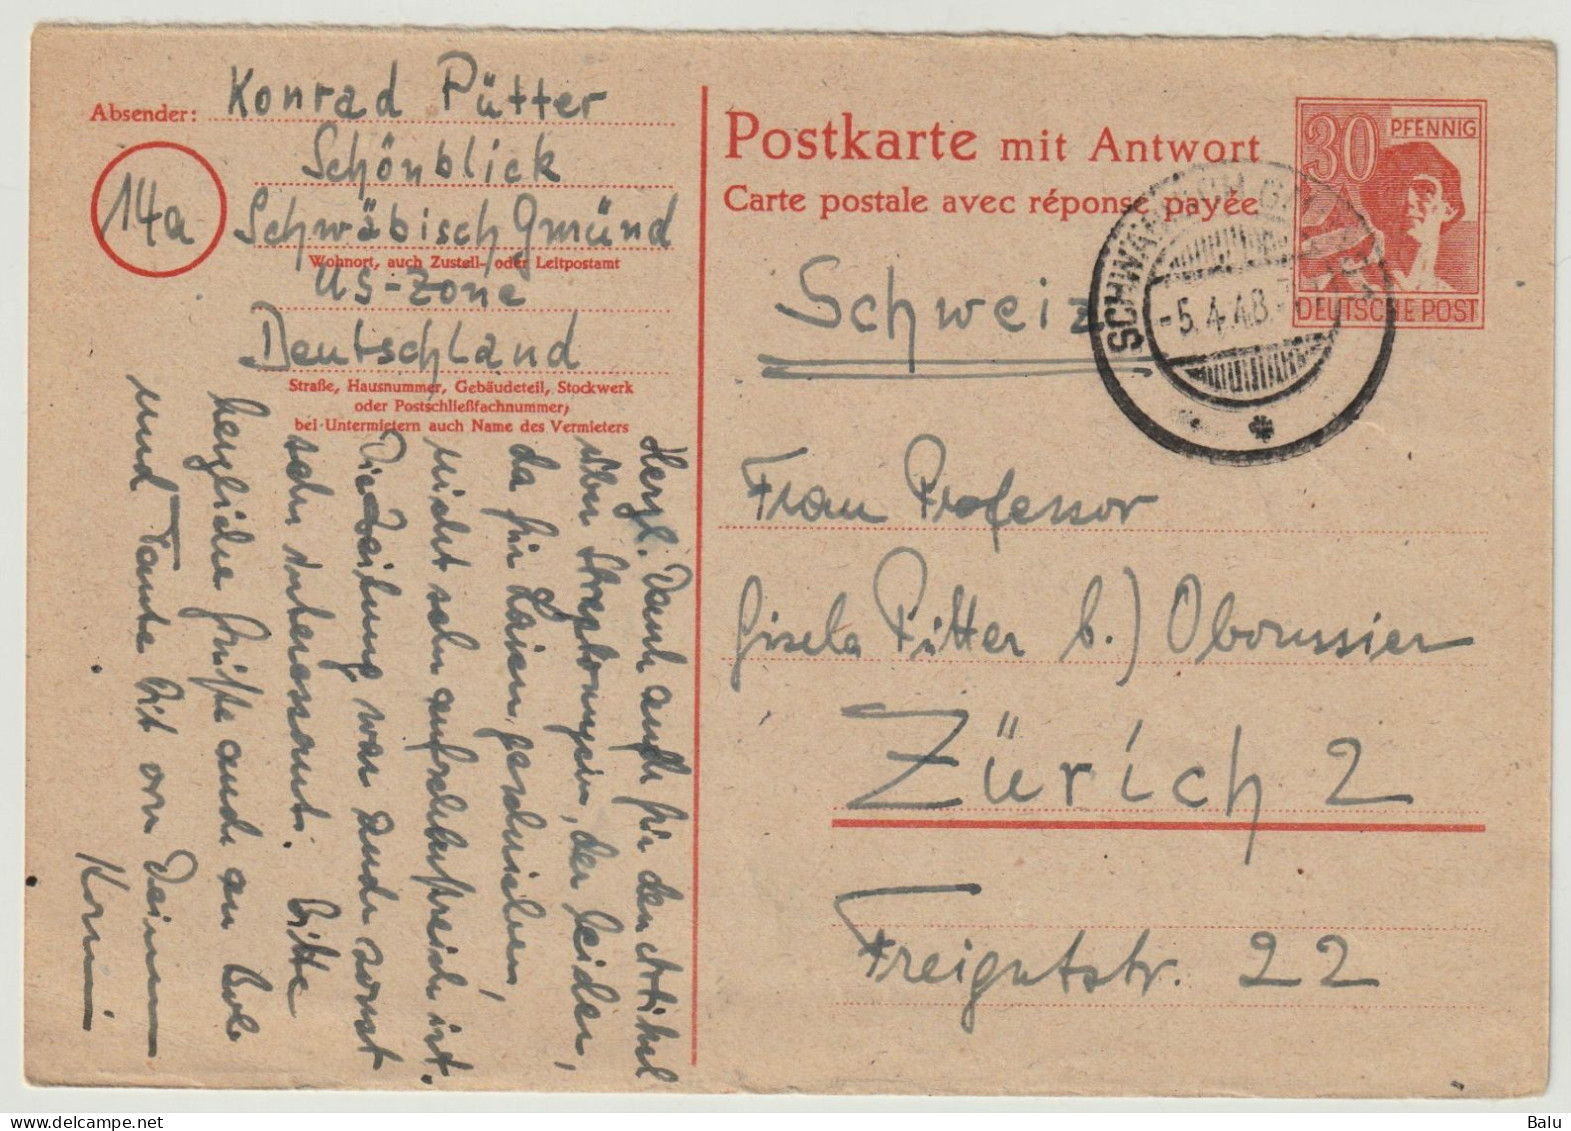 Absender: Konrad Pütter
Schönblick
14a Schwäbisch Gmünd
Wohnort, auch Zustell- oder Leitpostamt
US-Zone
Deutschland
Straße, Hausnummer, Gebäudeteil, Stockwerk
oder Postschließfachnummer;
bei Untermietern auch Name des Vermieters
Herzl. Dank auch für den Artikel
über Streptomycin, der leider,
da für Laien geschrieben,
nicht sehr aufschlußreich ist.
Die Zeitung war auch sonst
sehr interessant. Bitte
herzliche Grüße auch an
und Tante von Deinem
Postkarte mit Antwort
Carte postale avec réponse payée
30 PFENNIG
DEUTSCHE POST
SCHWÄBISCH GMÜND
-5.4.48.
Schweiz
Frau Professor
Gisela Pütter b.) Oborussier
Zürich 2
Freigutstr. 22
Balu